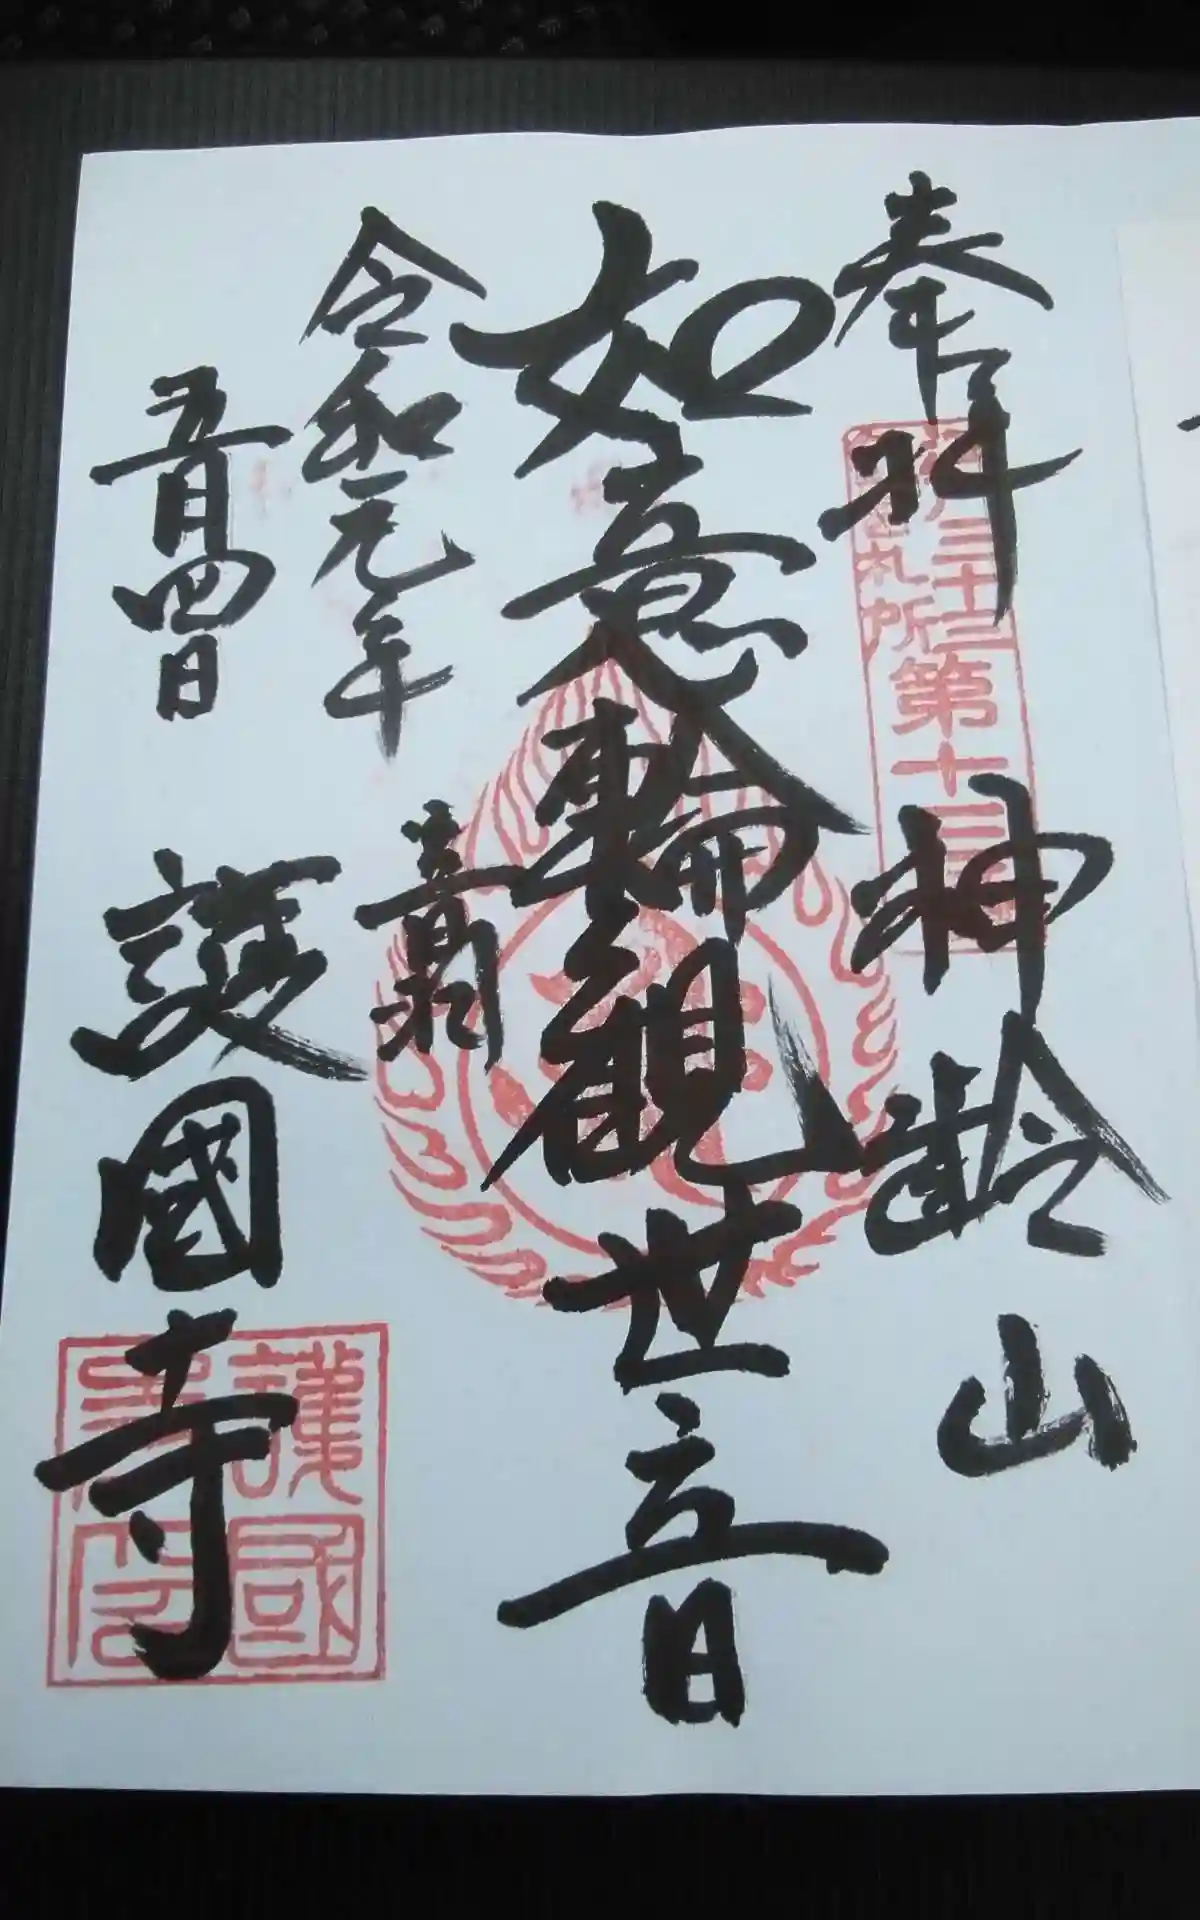 奉拝
神齢山
三十三
札所
第十三
如意輪観世音
令和元年
五月四日
護國寺
護國